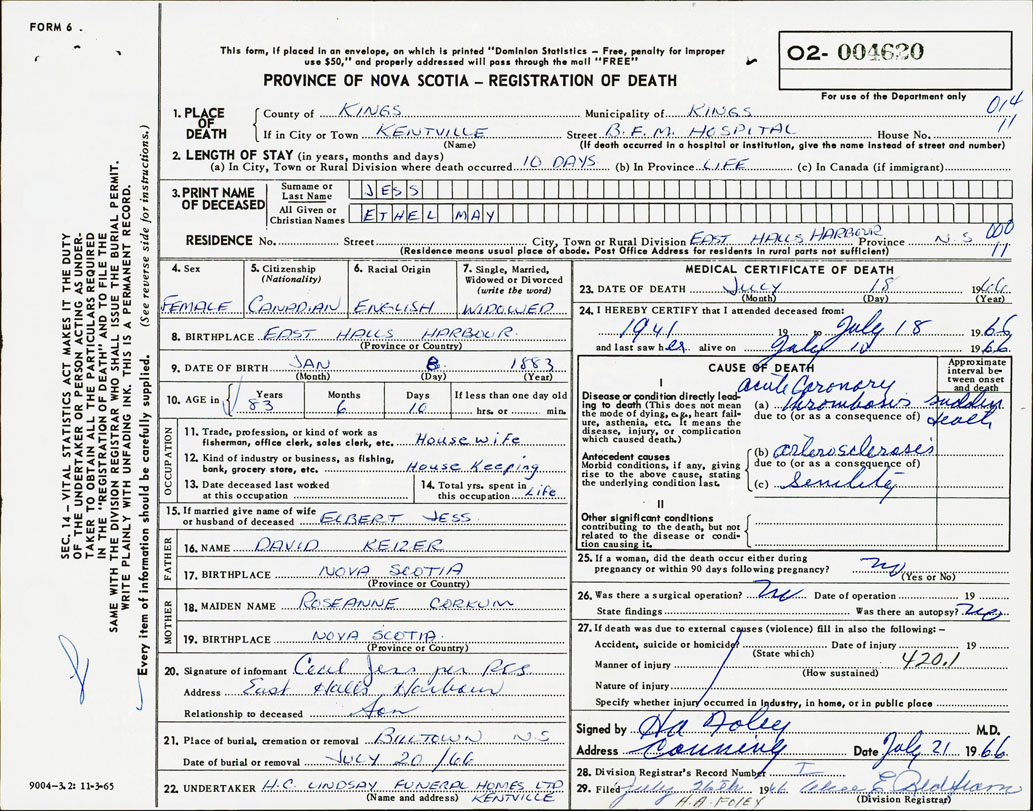 FORM 6 .
This form, if placed in an envelope, on which is printed "Dominion Statistics – Free, penalty for improper
use $50," and properly addressed will pass through the mail "FREE"
PROVINCE OF NOVA SCOTIA – REGISTRATION OF DEATH
O2- 004620
For use of the Department only
014
11
1. PLACE OF DEATH County of KINGS Municipality of KINGS
If in City or Town KENTVILLE Street B.F.M. HOSPITAL House No.
(Name) (If death occurred in a hospital or institution, give the name instead of street and number)
2. LENGTH OF STAY (in years, months and days)
(a) In City, Town or Rural Division where death occurred 10 DAYS. (b) In Province LIFE (c) In Canada (if immigrant)
3. PRINT NAME OF DECEASED Surname or Last Name JESS
All Given or Christian Names ETHEL MAY
RESIDENCE No. Street City, Town or Rural Division EAST HALLS HARBOUR Province N.S 000
(Residence means usual place of abode. Post Office Address for residents in rural parts not sufficient) 11
4. Sex FEMALE
5. Citizenship (Nationality) CANADIAN
6. Racial Origin ENGLISH
7. Single, Married, Widowed or Divorced (write the word) WIDOWED
8. BIRTHPLACE EAST HALLS HARBOUR.
(Province or Country)
9. DATE OF BIRTH JAN 8 1883
(Month) (Day) (Year)
10. AGE in Years Months Days If less than one day old
83 6 10 hrs. or min.
OCCUPATION
11. Trade, profession, or kind of work as fisherman, office clerk, sales clerk, etc. House wife
12. Kind of industry or business, as fishing, bank, grocery store, etc. House Keeping
13. Date deceased last worked at this occupation
14. Total yrs. spent in this occupation Life
15. If married give name of wife or husband of deceased ELBERT JESS.
FATHER
16. NAME DAVID KEIZER
17. BIRTHPLACE NOVA SCOTIA
(Province or Country)
MOTHER
18. MAIDEN NAME ROSEANNE CORKUM
19. BIRTHPLACE NOVA SCOTIA.
(Province or Country)
20. Signature of informant Cecil Jess per
Address East Halls Harbour
Relationship to deceased Son
21. Place of burial, cremation or removal BILLTOWN N.S
Date of burial or removal JULY 20/66
22. UNDERTAKER H.C. LINDSAY FUNERAL HOMES LTD
(Name and address) KENTVILLE
MEDICAL CERTIFICATE OF DEATH
23. DATE OF DEATH July 18 1966
(Month) (Day) (Year)
24. I HEREBY CERTIFY that I attended deceased from:
1941 19 to July 18 1966
and last saw her alive on July 10 1966
CAUSE OF DEATH
Approximate interval between onset and death
I
Disease or condition directly leading to death (This does not mean the mode of dying, e.g., heart failure, asthenia, etc. It means the disease, injury, or complication which caused death.)
acute Coronary
(a) thrombosis sudden
due to (or as a consequence of) death
Antecedent causes
Morbid conditions, if any, giving rise to the above cause, stating the underlying condition last.
(b) arterosclerosis
due to (or as a consequence of)
(c) Senility
II
Other significant conditions
contributing to the death, but not related to the disease or condition causing it.
25. If a woman, did the death occur either during pregnancy or within 90 days following pregnancy? no
(Yes or No)
26. Was there a surgical operation? no Date of operation 19
State findings Was there an autopsy? no
27. If death was due to external causes (violence) fill in also the following:–
Accident, suicide or homicide? Date of injury 19
(State which)
Manner of injury 420.1
(How sustained)
Nature of injury
Specify whether injury occurred in industry, in home, or in public place
Signed by Foley M.D.
Address Canning Date July 21 1966
28. Division Registrar's Record Number
29. Filed July 26th 1966
H.A. FOLEY (Division Registrar)
SEC. 14 – VITAL STATISTICS ACT MAKES IT THE DUTY
OF THE UNDERTAKER OR PERSON ACTING AS UNDER-
TAKER TO OBTAIN ALL THE PARTICULARS REQUIRED
IN THE "REGISTRATION OF DEATH" AND TO FILE THE
SAME WITH THE DIVISION REGISTRAR WHO SHALL ISSUE THE BURIAL PERMIT.
WRITE PLAINLY WITH UNFADING INK. THIS IS A PERMANENT RECORD.
Every item of information should be carefully supplied. (See reverse side for instructions.)
9004–3.2: 11-3-65